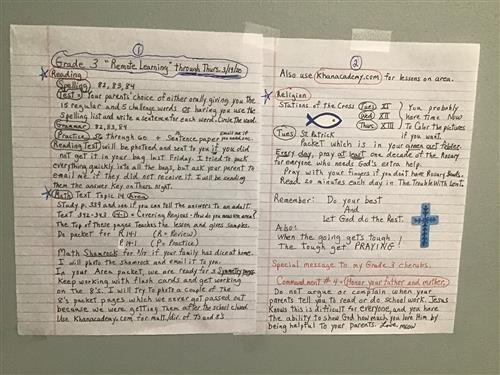 ①
Grade 3 "Remote Learning" through Thurs. 3/19/20
Reading
Spelling 82, 83, 84
Test = Your parents' choice of either orally giving you the
15 regular and 5 challenge words or having you use the
spelling list and write a sentence for each word. Circle the word.
Grammar 82, 83, 84
Practice 56 through 60 + Sentence paper Email me if
Reading Test will be photoed and sent to you if you did
not get it in your bag last Friday. I tried to pack
everything quickly into all the bags, but ask your parent to
email me if they did not receive it. I will be sending
them the answer key on Thurs. night.
Math Text Topic 14 Area
Study p. 339 and see if you can tell the answers to an adult.
Text 342-343 14-1 = Covering Regions - How do you find area?
The Top of these pages teaches the lesson and gives samples.
Do packet for R 14-1 (R = Review)
P. 14-1 (P = Practice)
Math Shamrock for Hr if your family has dice at home.
I will photo the shamrock and email it to you.
In your Area packet, we are ready for a Symmetry page.
Keep working with flash cards and get working
on the 8's. I will try to photo a couple of the
8's packet pages which we never got passed out
because we were getting them after the school closed.
Use Khanacademy.com for mult./div. of 7s and 8's.
②
Also use Khanacademy.com for lessons on area.
Religion
Stations of the Cross Tues XI
Wed XII
Thus XIII
You probably
have time now
to color the pictures
if you want.
Tues St. Patrick
Packet which is in your green out folder.
Every day, pray at least one decade of the Rosary
for everyone who needs God's extra help.
Pray with your fingers if you don't have Rosary beads.
Read 20 minutes each day in The Trouble With Lent.
Remember: Do your best
And
Let God do the Rest.
Also:
When the going gets tough
The tough get PRAYING!
Special message to my Grade 3 cherubs.
Commandment # 4 = Honor your father and mother.
Do not argue or complain when your
parents tell you to read or do school work. Jesus
knows this is difficult for everyone, and you have
the ability to show God how much you love Him by
being helpful to your parents. Love, meow